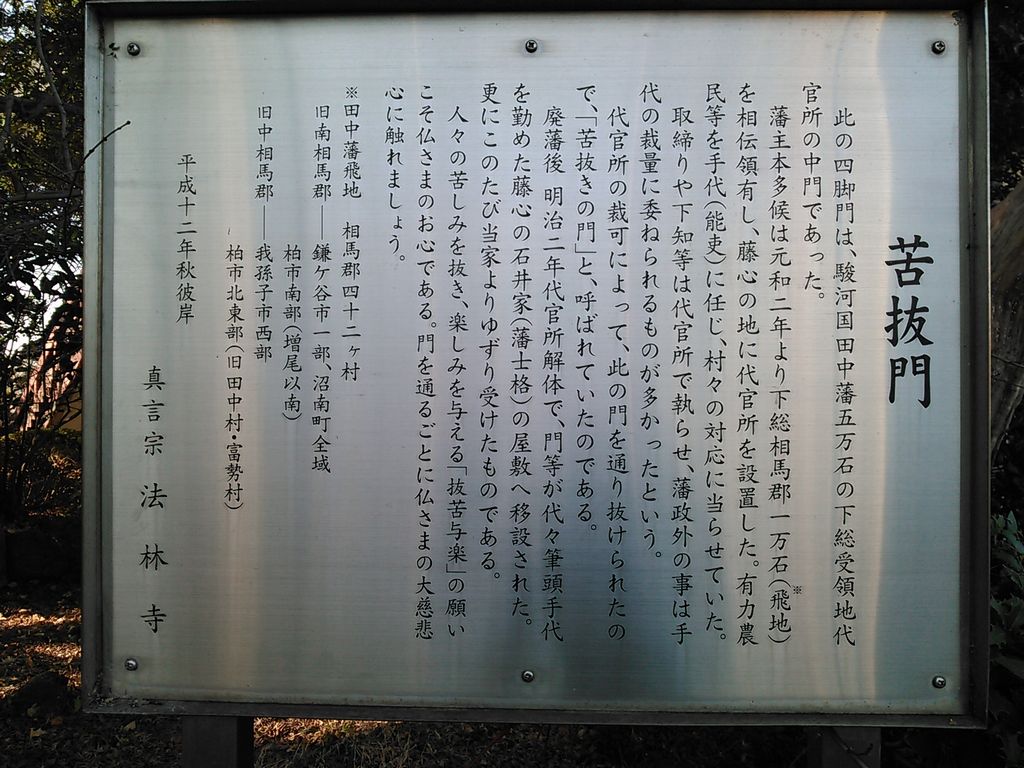 苦抜門
此の四脚門は、駿河国田中藩五万石の下総受領地代
官所の中門であった。
藩主本多候は元和二年より下総相馬郡一万石(飛地)※
を相伝領有し、藤心の地に代官所を設置した。有力農
民等を手代(能吏)に任じ、村々の対応に当らせていた。
取締りや下知等は代官所で執らせ、藩政外の事は手
代の裁量に委ねられるものが多かったという。
代官所の裁可によって、此の門を通り抜けられたの
で、「苦抜きの門」と、呼ばれていたのである。
廃藩後 明治二年代官所解体で、門等が代々筆頭手代
を勤めた藤心の石井家(藩士格)の屋敷へ移設された。
更にこのたび当家よりゆずり受けたものである。
人々の苦しみを抜き、楽しみを与える「抜苦与楽」の願い
こそ仏さまのお心である。門を通るごとに仏さまの大慈悲
心に触れましょう。
※田中藩飛地 相馬郡四十二ヶ村
旧南相馬郡――鎌ケ谷市一部、沼南町全域
柏市南部(増尾以南)
旧中相馬郡――我孫子市西部
柏市北東部(旧田中村・富勢村)
平成十二年秋彼岸
真言宗 法林寺